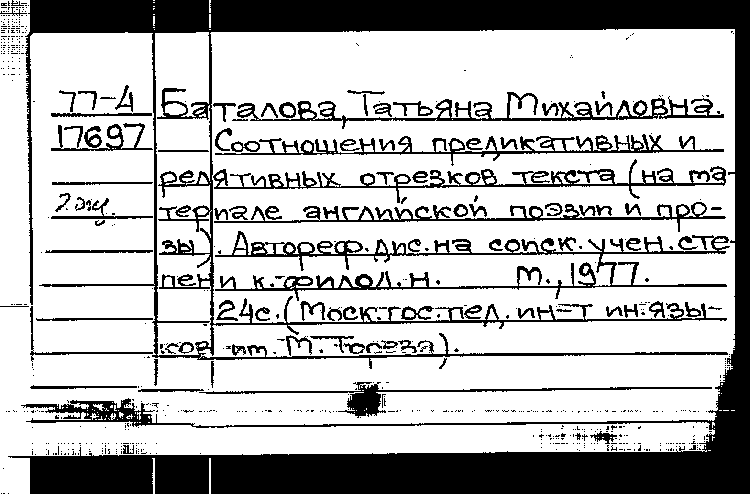 77-4 Баталова, Татьяна Михайловна.
17697 Соотношения предикативных и
релятивных отрезков текста (на ма-
2 экз. териале английской поэзии и про-
зы). Автореф. дис. на соиск. учен. сте-
пени к. филол. н. М., 1977.
24с. (Моск. гос. пед. ин-т ин. язы-
ков им. М. Тореза).